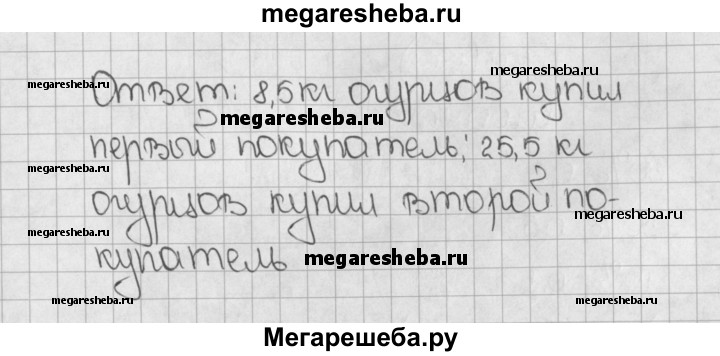 megaresheba.ru
megaresheba.ru
Ответ: 8,5 кг огурцов купил
megaresheba.ru
megaresheba.ru
первый покупатель; 25,5 кг
megaresheba.ru
megaresheba.ru
огурцов купил второй по-
megaresheba.ru
купатель
megaresheba.ru
megaresheba.ru
megaresheba.ru
Мегарешеба.ру